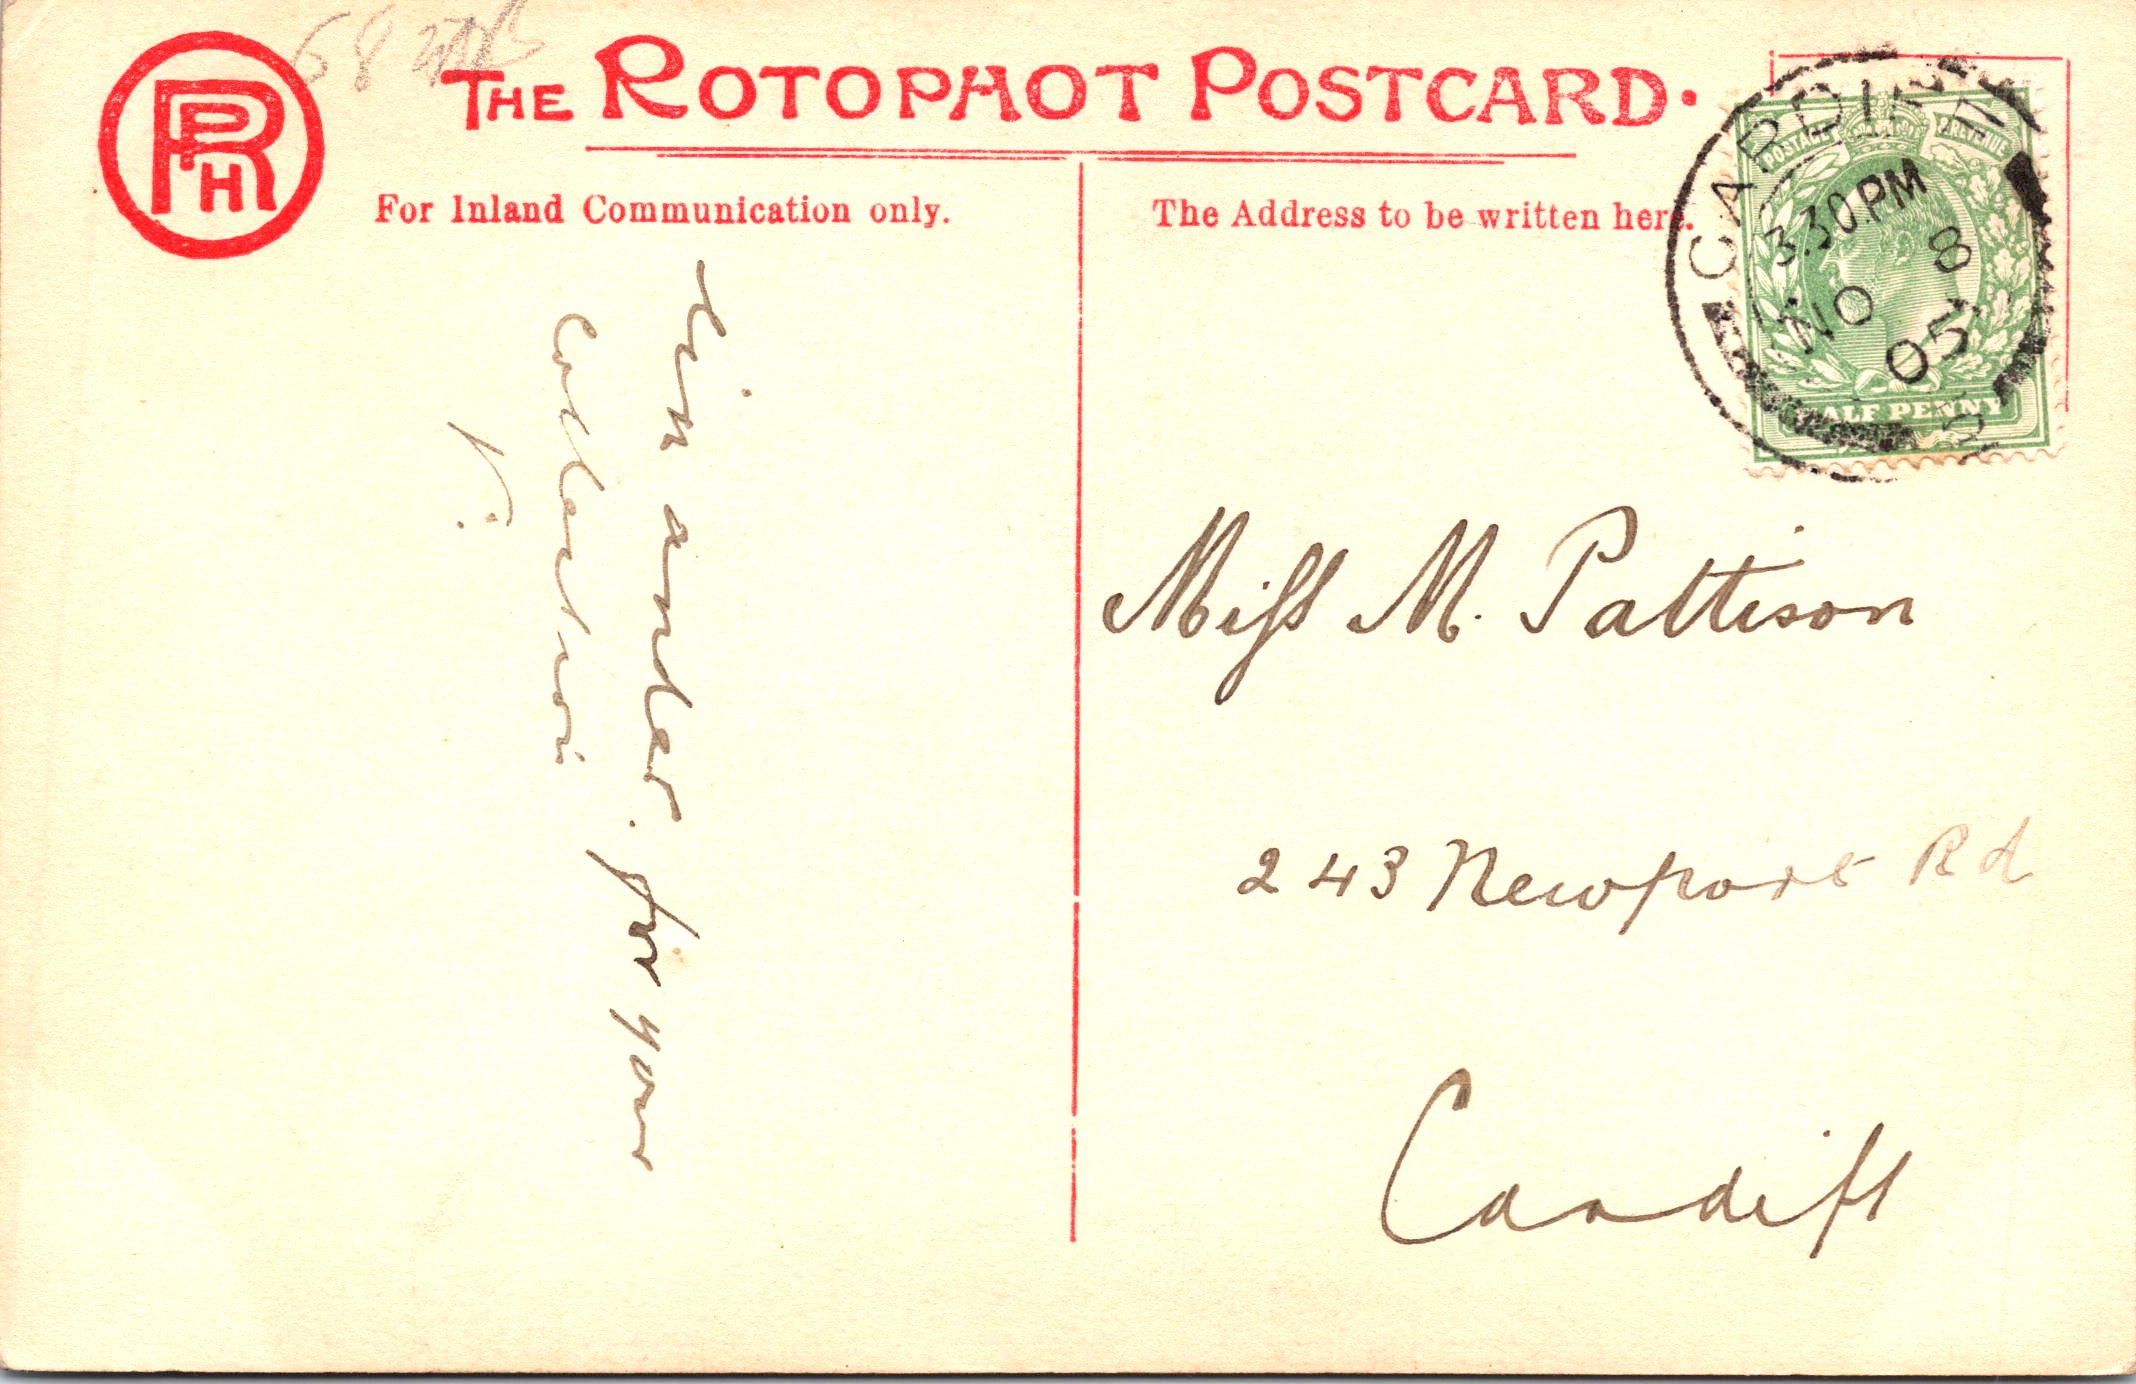 THE ROTOPHOT POSTCARD.
RPH
For Inland Communication only.
The Address to be written here.
CARDIFF
3.30PM
8
NO
05
POSTAGE REVENUE
HALF PENNY
another for your
Collection
V.
Miss M. Pattison
243 Newport Rd
Cardiff